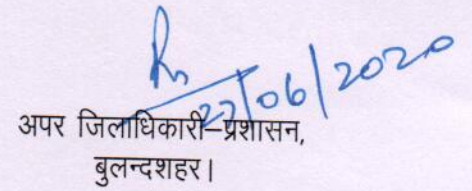 22/06/2020
अपर जिलाधिकारी–प्रशासन,
बुलन्दशहर।